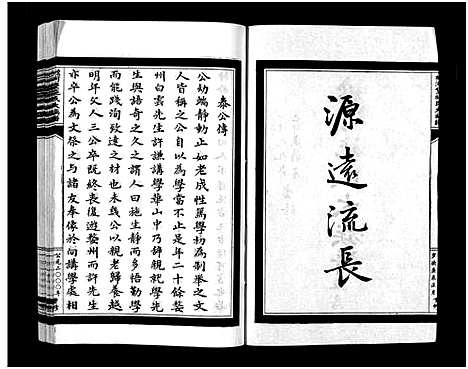 源遠流長
泰公傳
公幼端靜動止如老成性篤學初為制舉之文
人皆稱之公自以為學當不止是年二十餘婺
州白雲先生許謙講學華山中乃辭親就學先
生與語奇之久之謂人曰施生靜而多悟勤學
而能踐洵致遠之材也未幾公以親老歸養越
明年丈人三公卒既終喪復遊婺州而許先生
亦卒公為文祭之與諸友奉像於向講學處
公元二〇〇〇年